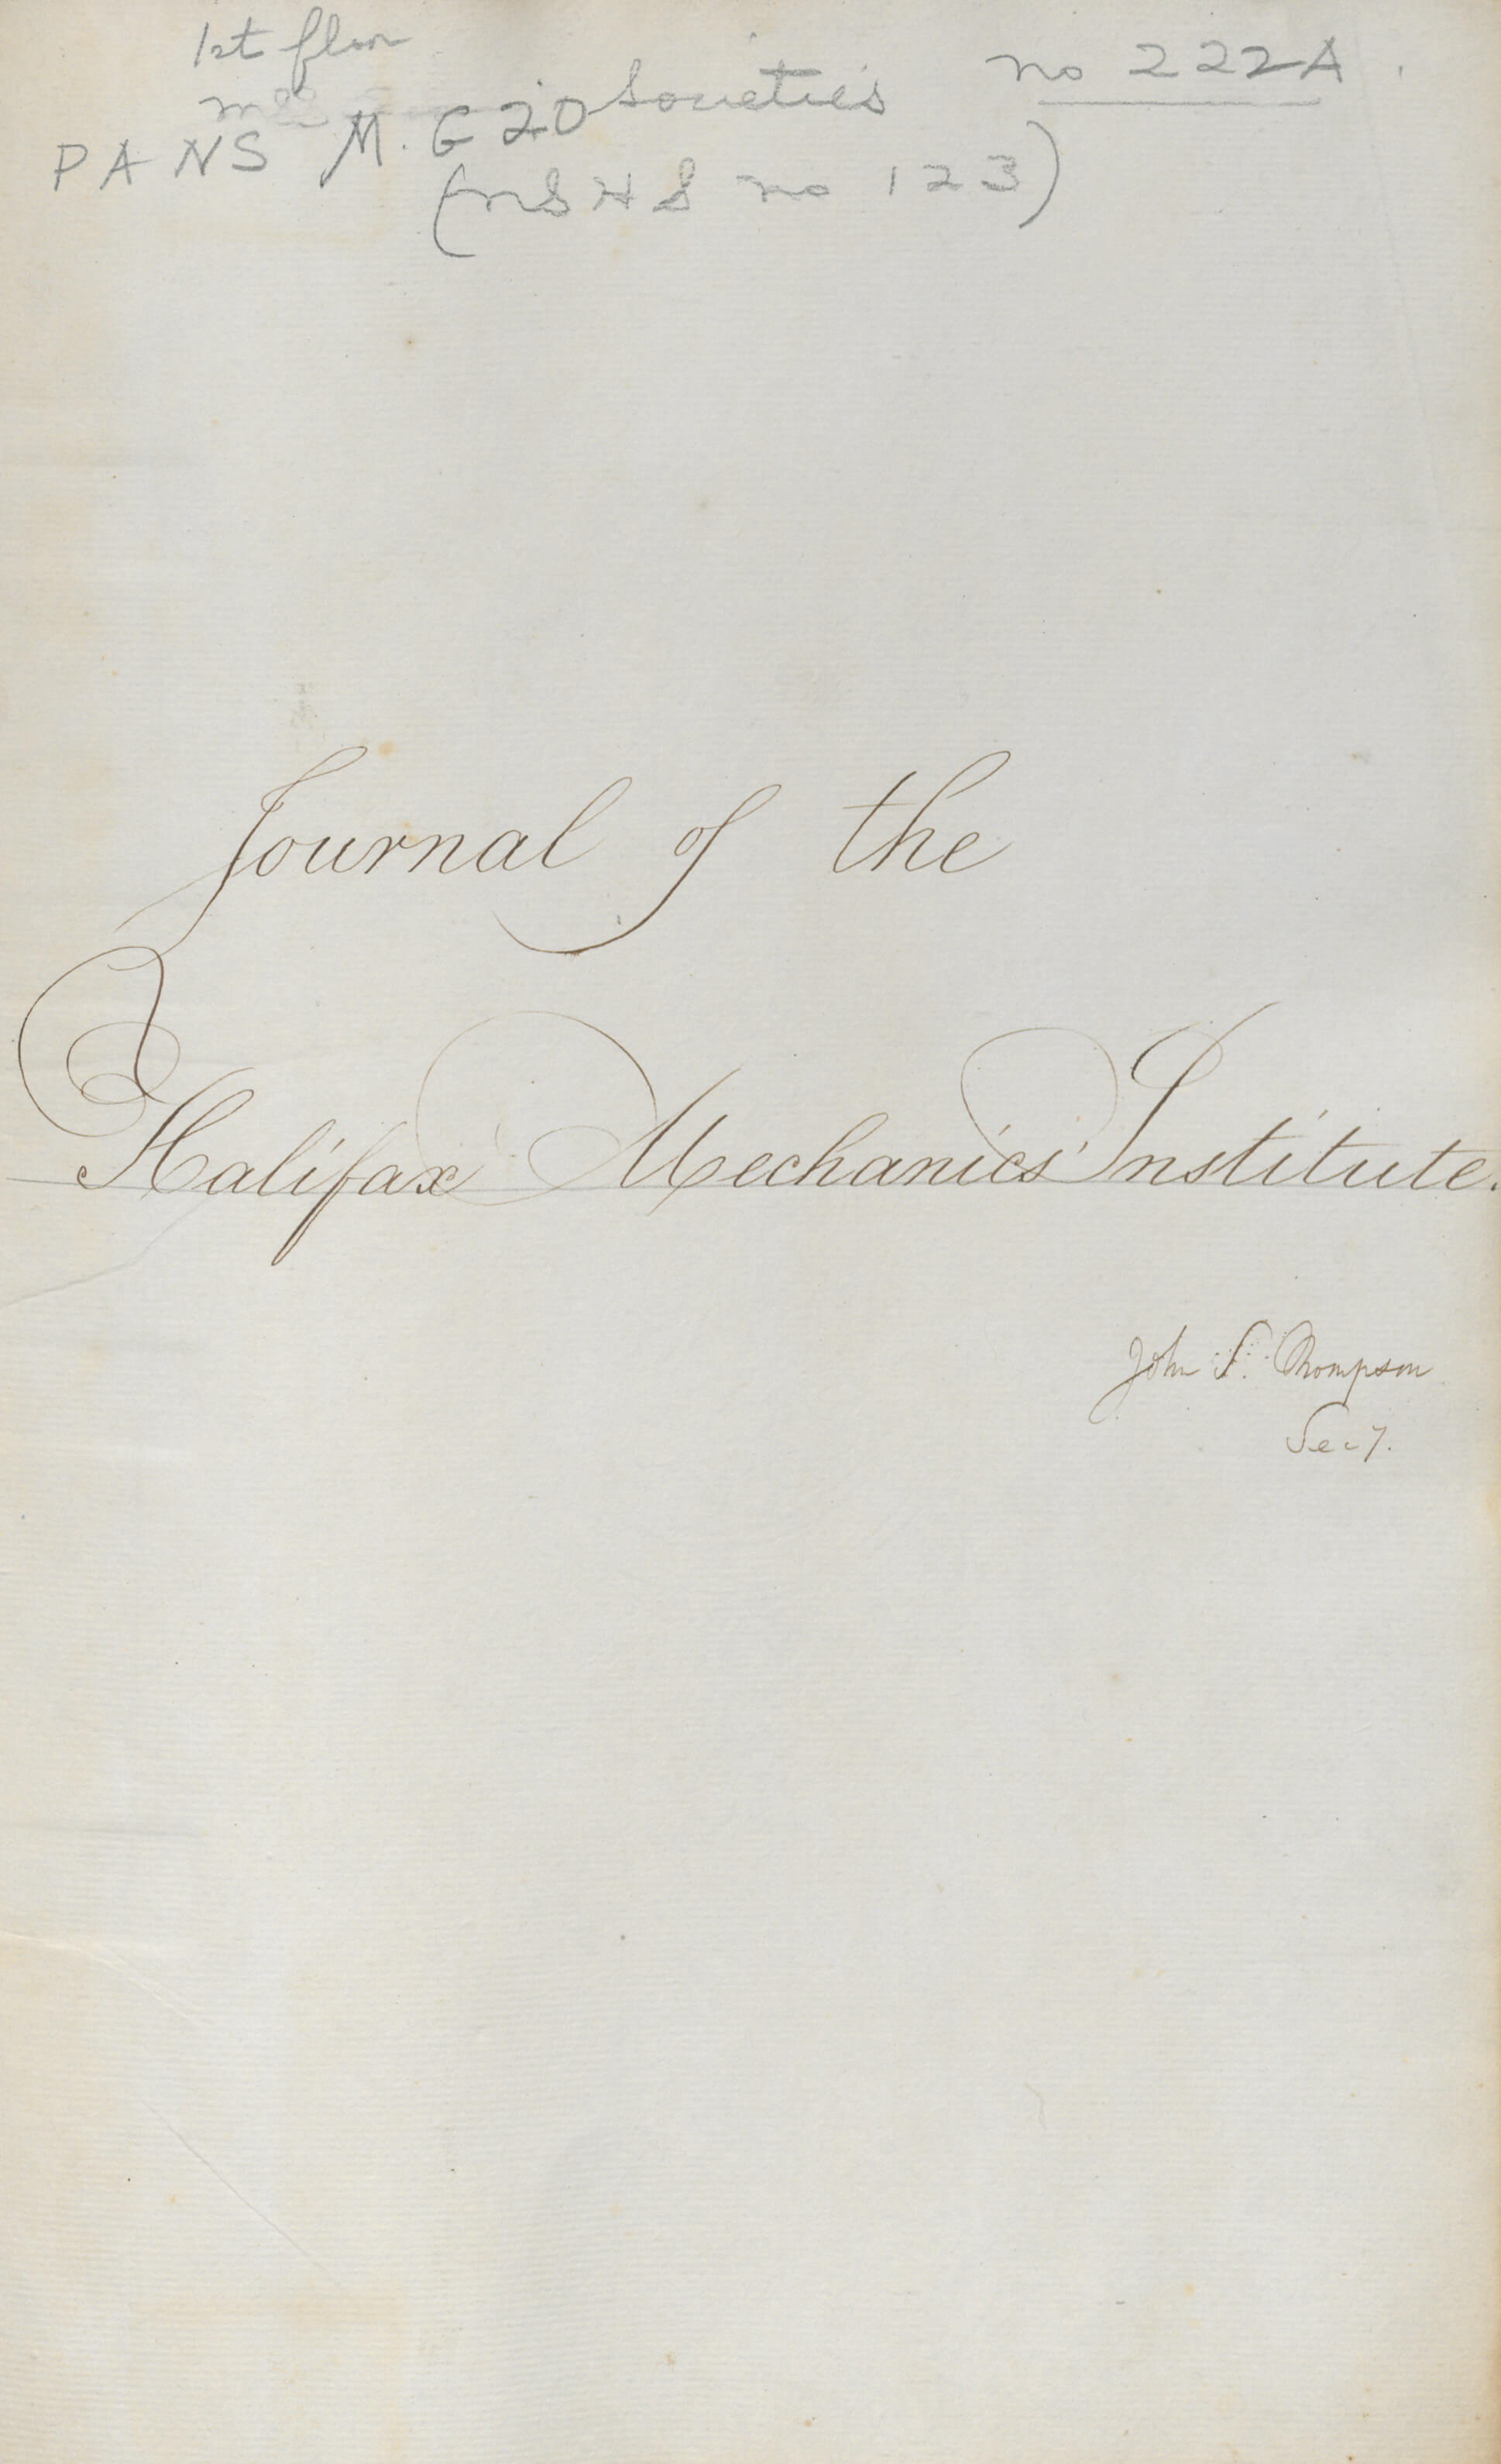 1st floor
no 222A.
PANS M. G 20 Societies
(NSHS no 123)
Journal of the
Halifax Mechanics' Institute.
John S. Thompson
Secy.